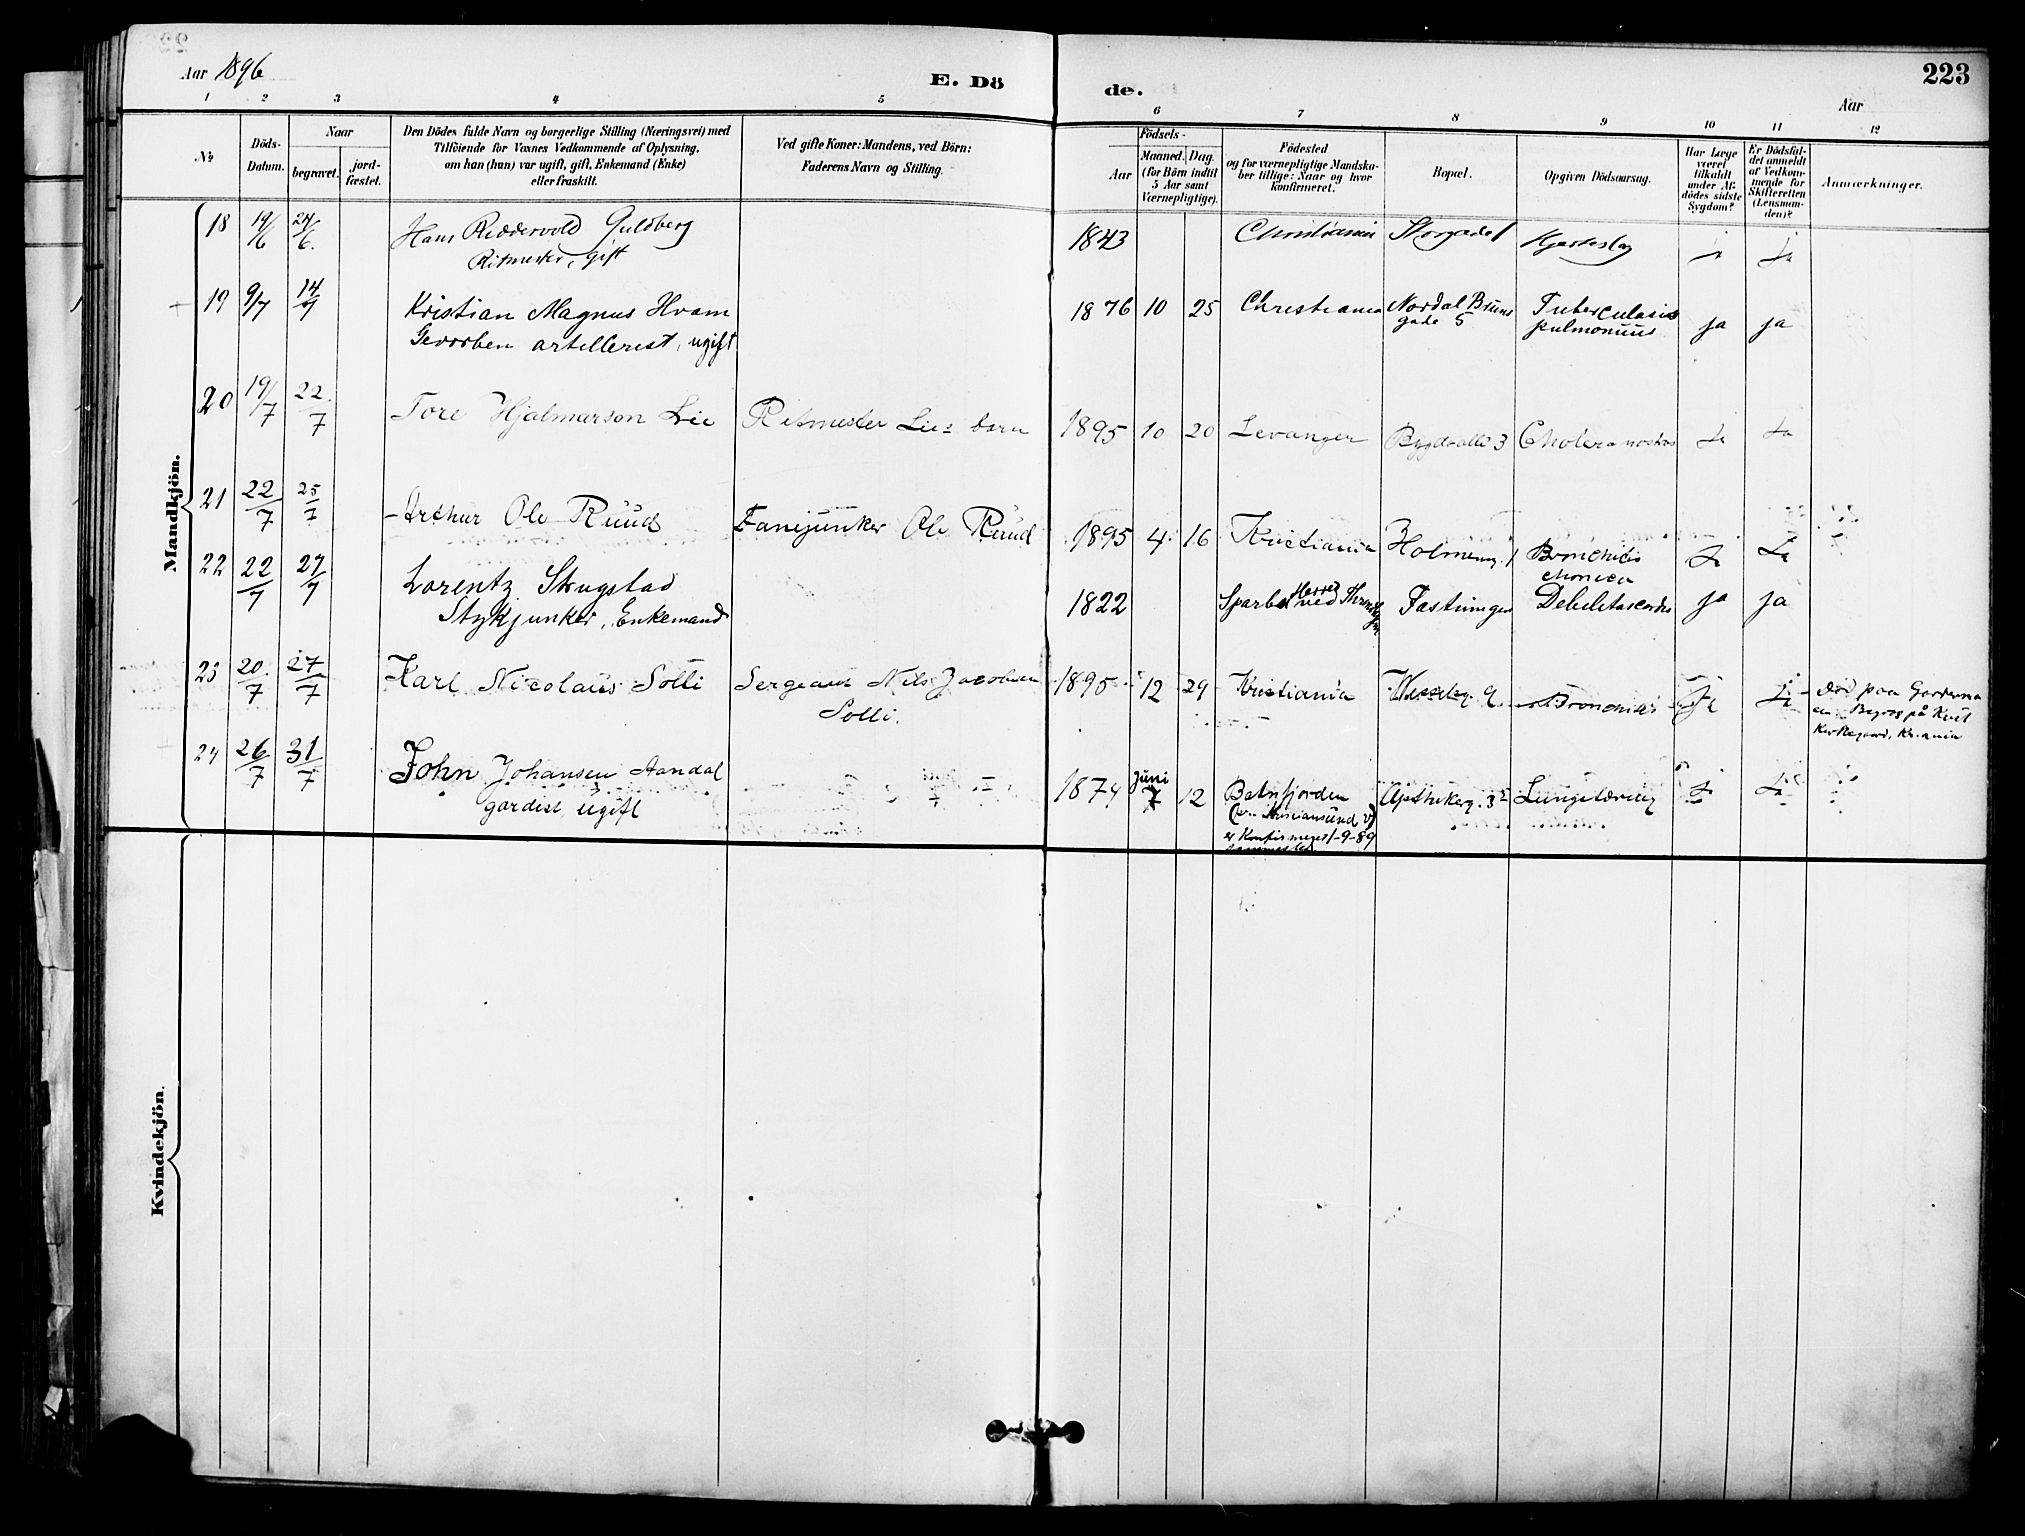 Aar 1896
E. Dö
de.
223
Aar
1 2 3 4 5 6 7 8 9 10 11 12
No
Döds-
Datum.
Naar
begravet.
jord-
fæstet.
Den Dödes fulde Navn og borgerlige Stilling (Næringsvei) med
Tilföiende for Voxnes Vedkommende af Oplysning,
om han (hun) var ugift, gift, Enkemand (Enke)
eller fraskilt.
Ved gifte Koner: Mandens, ved Börn:
Faderens Navn og Stilling.
Födsels-
Aar
Maaned. Dag.
(for Börn indtil
5 Aar samt
Værnepligtige).
Födested
og for værnepligtige Mandska-
ber tillige: Naar og hvor
konfirmeret.
Bopæl.
Opgiven Dödsaarsag.
Har Læge
været
tilkaldt
under Af-
dödes sidste
Sygdom?
Er Dödsfal-
det anmeldt
af Vedkom-
mende for
Skifteretten
(Lensman-
den)?
Anmærkninger.
Mandkjön.
18 19/6 24/6. Hans Riddervold Guldberg 1843 Christiania Storgade 1 Hjerteslag ja ja
Ritmester, gift
19 9/7 14/7 Kristian Magnus Hvam 1876 10 25 Christiania Nordal Bruns Tuberculosis ja ja
Gevorben artillerist, ugift gade 5 pulmonuus
20 19/7 22/7 Tore Hjalmarson Lie Ritmester Lies barn 1895 10 20 Levanger Bygdøallé 3 Cholera nostras Ja Ja
21 22/7 25/7 Arthur Ole Ruud Fanejunker Ole Ruud 1895 4 16 Kristiania Holmensg. 1 Bronchitis Ja Ja
chonica
22 22/7 27/7 Lorentz Skugstad 1822 Sparbo Herred ved Fæstningen Debilitas cordis ja ja
Stykjunker, Enkemand
23 20/7 27/7 Karl Nicolaus Solli Sergeant Nils Jacobsen 1895 12 29 Kristiania 9. Bronchitis Ja Ja Död paa
Solli. på
Kirkegaard, Kr.ania
24 26/7 31/7 John Johansen Aandal 1874 Juni 7 12 Batnfjorden Apothekerg. 3 Lungetæring Ja Ja
gardist, ugift (pr. Kristiansund
er Konfirmeret 1-9-89
sammesteds
Kvindekjön.